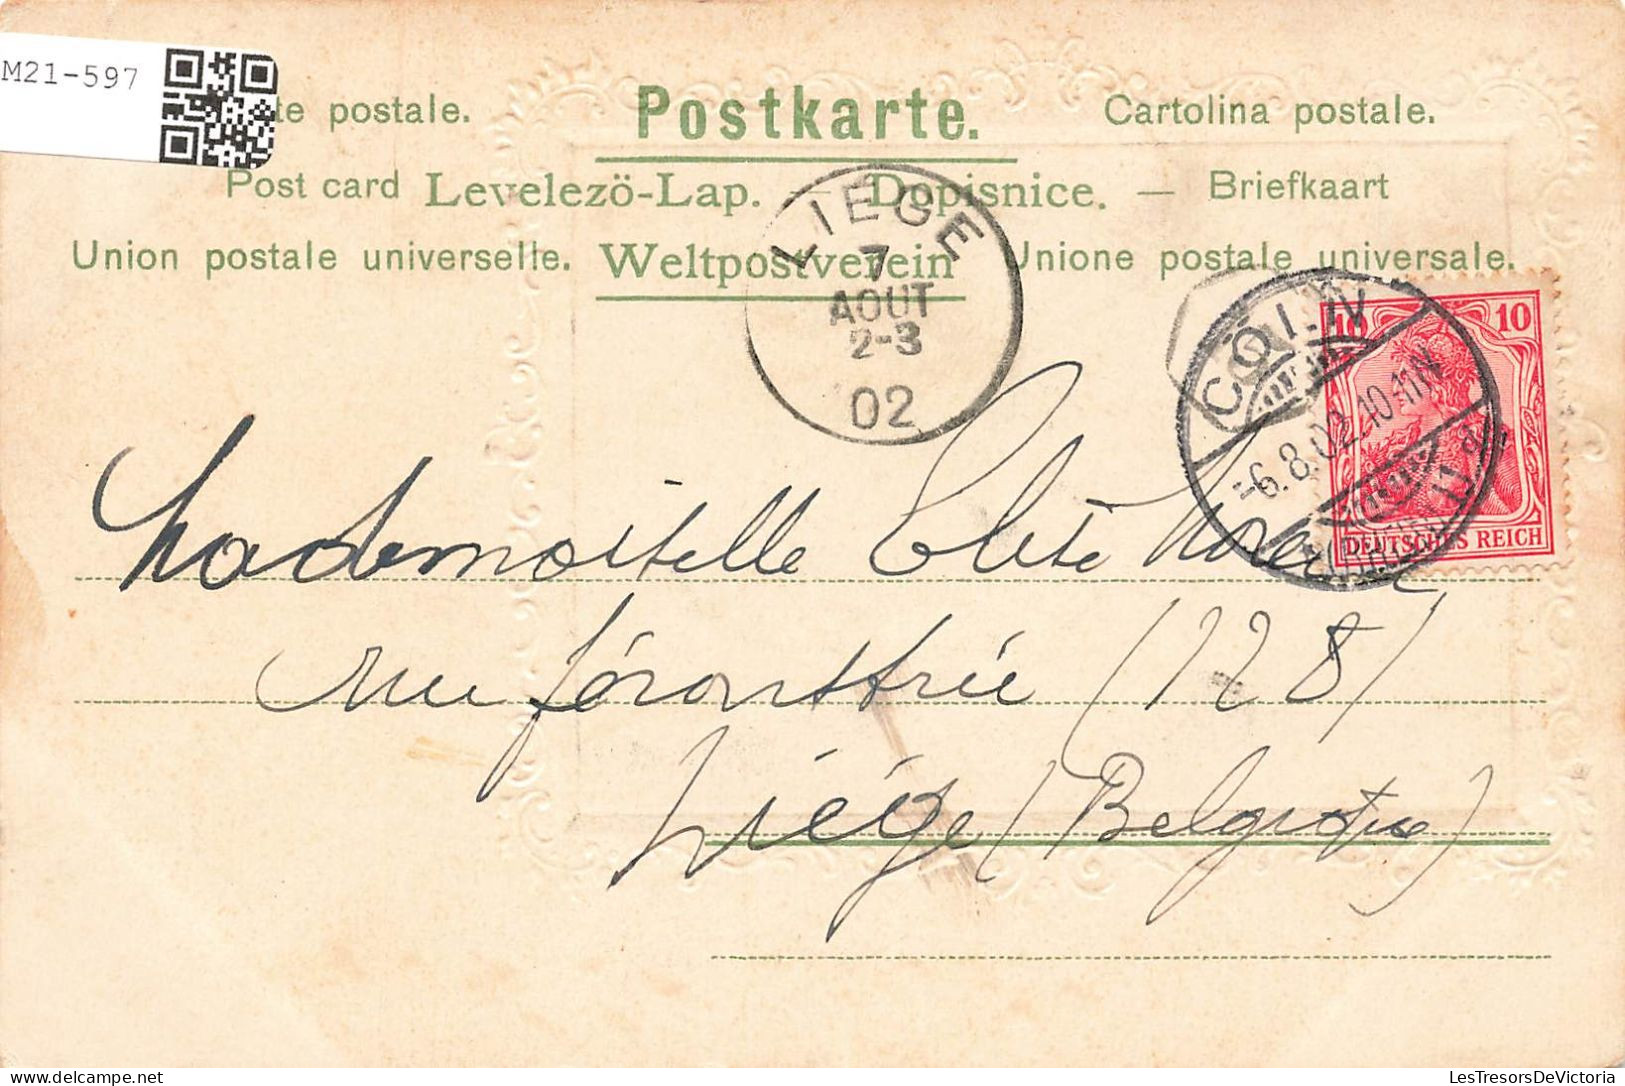 M21-597
te postale. Postkarte. Cartolina postale.
Post card Levelezö-Lap. — Dopisnice. — Briefkaart
Union postale universelle. Weltpostverein Unione postale universale.
LIÉGE
7
AOUT
2-3
02
CÖLN
-6.8.02.10-11N
10 10
DEUTSCHES REICH
Mademoiselle
rue féronstrée (128)
Liége (Belgique)
LesTresorsDeVictoria